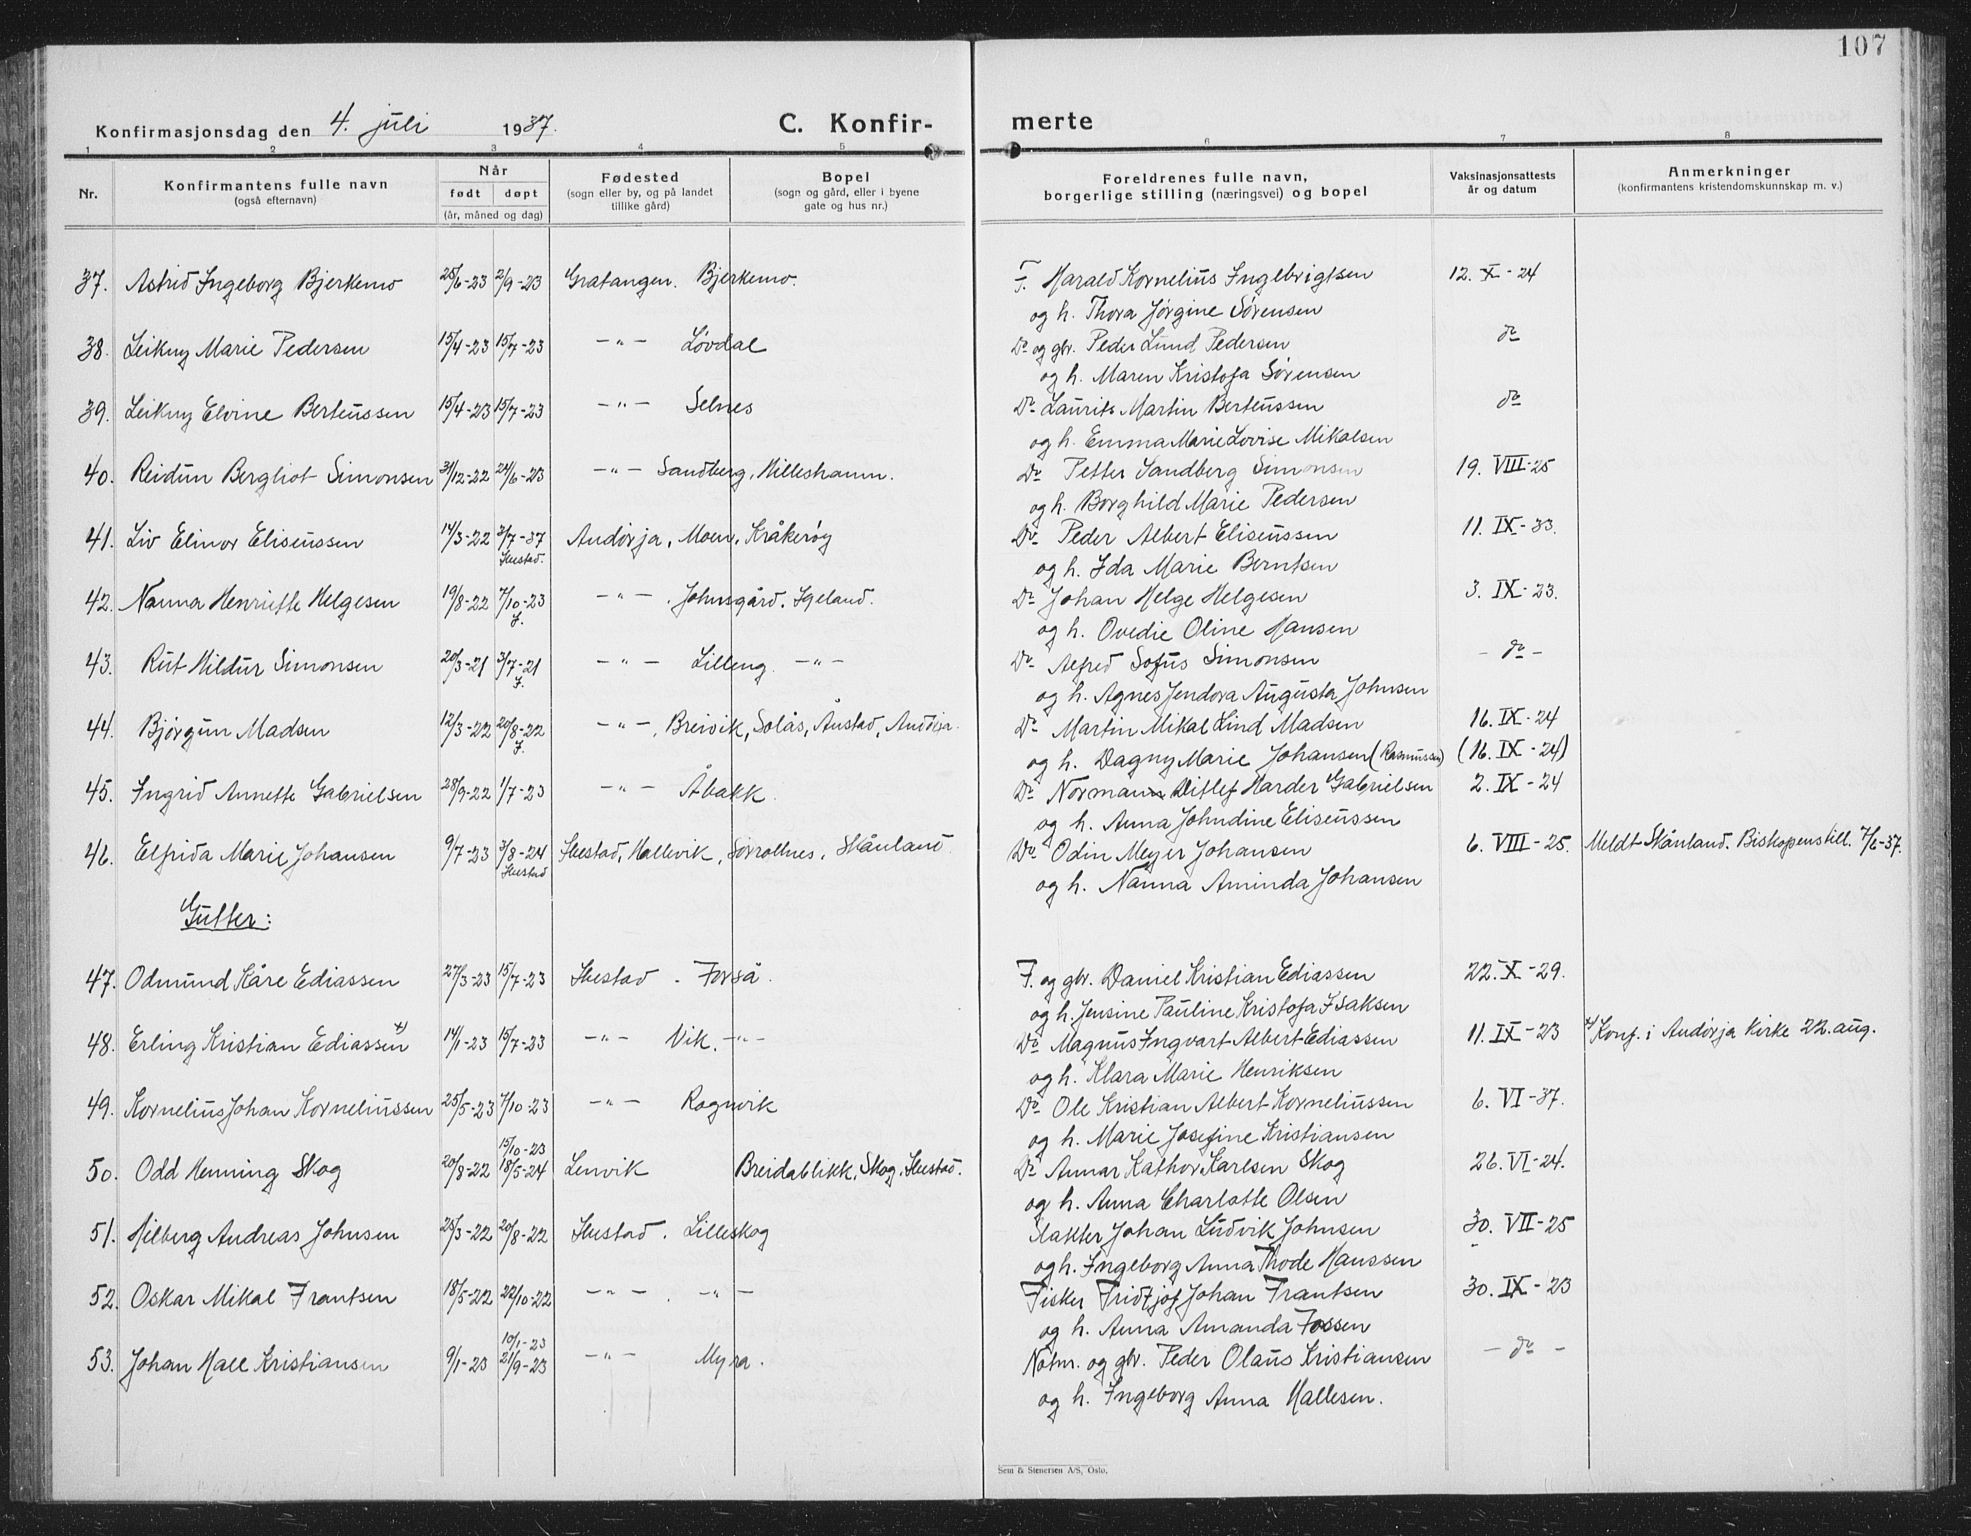 107
Konfirmasjonsdag den 4. juli 1937. C. Konfir- merte
1 2 3 4 5 6 7 8
Nr. Konfirmantens fulle navn (også efternavn) Når født døpt (år, måned og dag) Fødested (sogn eller by, og på landet tillike gård) Bopel (sogn og gård, eller i byene gate og hus nr.) Foreldrenes fulle navn, borgerlige stilling (næringsvei) og bopel Vaksinasjonsattests år og datum Anmerkninger (konfirmantens kristendomskunnskap m. v.)
37. Astrid Ingeborg Bjerkemo 25/6-23 2/9-23 Gratangen. Bjerkemo. F. Harald Kornelius Ingebrigtsen 12. X - 24
og h. Thora Jørgine Sørensen
38. Leikny Marie Pedersen 15/4-23 15/7-23 -"- Løvdal Do og gbr. Peder Lund Pedersen do
og h. Maren Kristofa Sørensen
39. Leikny Elvine Berteussen 15/4-23 15/7-23 -"- Selnes Do Laurits Martin Berteussen do
og h. Emma Marie Lovise Mikalsen
40. Reidun Bergliot Simonsen 31/12-22 24/6-23 -"- Sandberg, Hilleshamn. Do Petter Sandberg Simonsen 19. VIII-25
og h. Borghild Marie Pedersen
41. Liv Elinor Eliseussen 14/3-22 3/7-37 Ibestad. Andørja, Moen, Kråkerøy Do Peder Albert Eliseussen 11. IX-33.
og h. Ida Marie Berntsen
42. Nanna Henriette Helgesen 19/8-22 7/10-23 I. -"- . Johnsgård. Igeland. Do Johan Helge Helgesen 3. IX-23.
og h. Ovedie Oline Hansen
43. Rut Hildur Simonsen 20/3-21 3/7-21 I. -"- Lilleng -"- Do Alfred Sofus Simonsen - do -
og h. Agnes Jendora Augusta Johnsen
44. Bjørgun Madsen 12/3-22 20/8-22 I. -"-, Breivik, Solås, Ånstad, Andørja. Do Martin Mikal Lind Madsen 16. IX-24
og h. Dagny Marie Johansen (Rasmussen) (16. IX-24)
45. Ingrid Annette Gabrielsen 28/9-22 1/7-23 -"- Åbakk. Do Normann Ditlef Harder Gabrielsen 2. IX-24
og h. Anna Johndine Eliseussen
46. Elfrida Marie Johansen 9/7-23 3/8-24 Ibestad Ibestad, Hallevik, Sørrollnes, Skånland Do Odin Meyer Johansen 6. VIII-25. Meldt Skånland. Biskopens till. 7/6-37.
og h. Nanna Aminda Johansen
Gutter:
47. Odmund Kåre Ediassen 27/3-23 15/7-23 Ibestad - Forså. F. og gbr. Daniel Kristian Ediassen 22. X-29.
og h. Jensine Pauline Kristofa Isaksen
48. Erling Kristian Ediassen x) 14/1-23 15/7-23 -"- Vik. -"- Do Magnus Ingvart Albert Ediassen 11. IX-23 x) Konf. i Andørja kirke 22. aug.
og h. Klara Marie Henriksen
49. Kornelius Johan Korneliussen 25/5-23 7/10-23 -"- Rognvik Do Ole Kristian Albert Korneliussen 6. VI-37.
og h. Marie Josefine Kristiansen
50. Odd Henning Skog 20/8-22 15/10-23 18/5-24 Lenvik Breidablikk, Skog, Ibestad. Do Annar Kathor Karlsen Skog 26. VI-24.
og h. Anna Charlotte Olsen
51. Hilberg Andreas Johnsen 25/3-22 20/8-22 Ibestad. Lilleskog Slakter Johan Ludvik Johnsen 30. VII-25
og h. Ingeborg Anna Thode Hanssen
52. Oskar Mikal Frantsen 18/5-22 22/10-22 -"- . -"- Fisker Fridtjof Johan Frantsen 30. IX-23
og h. Anna Amanda Fossen
53. Johan Hall Kristiansen 9/1-23 10/1-23 21/9-23 -"- Myra. Notm. og gbr. Peder Olaus Kristiansen - do -
og h. Ingeborg Anna Hallesen.
Sem & Stenersen A/S, Oslo.